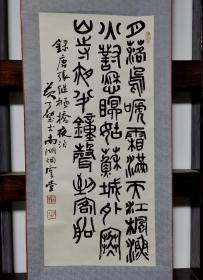 月落烏啼霜滿天江楓漁
火對愁眠姑蘇城外寒
山寺夜半鐘聲到客船
錄唐張繼楓橋夜泊
南湖烟